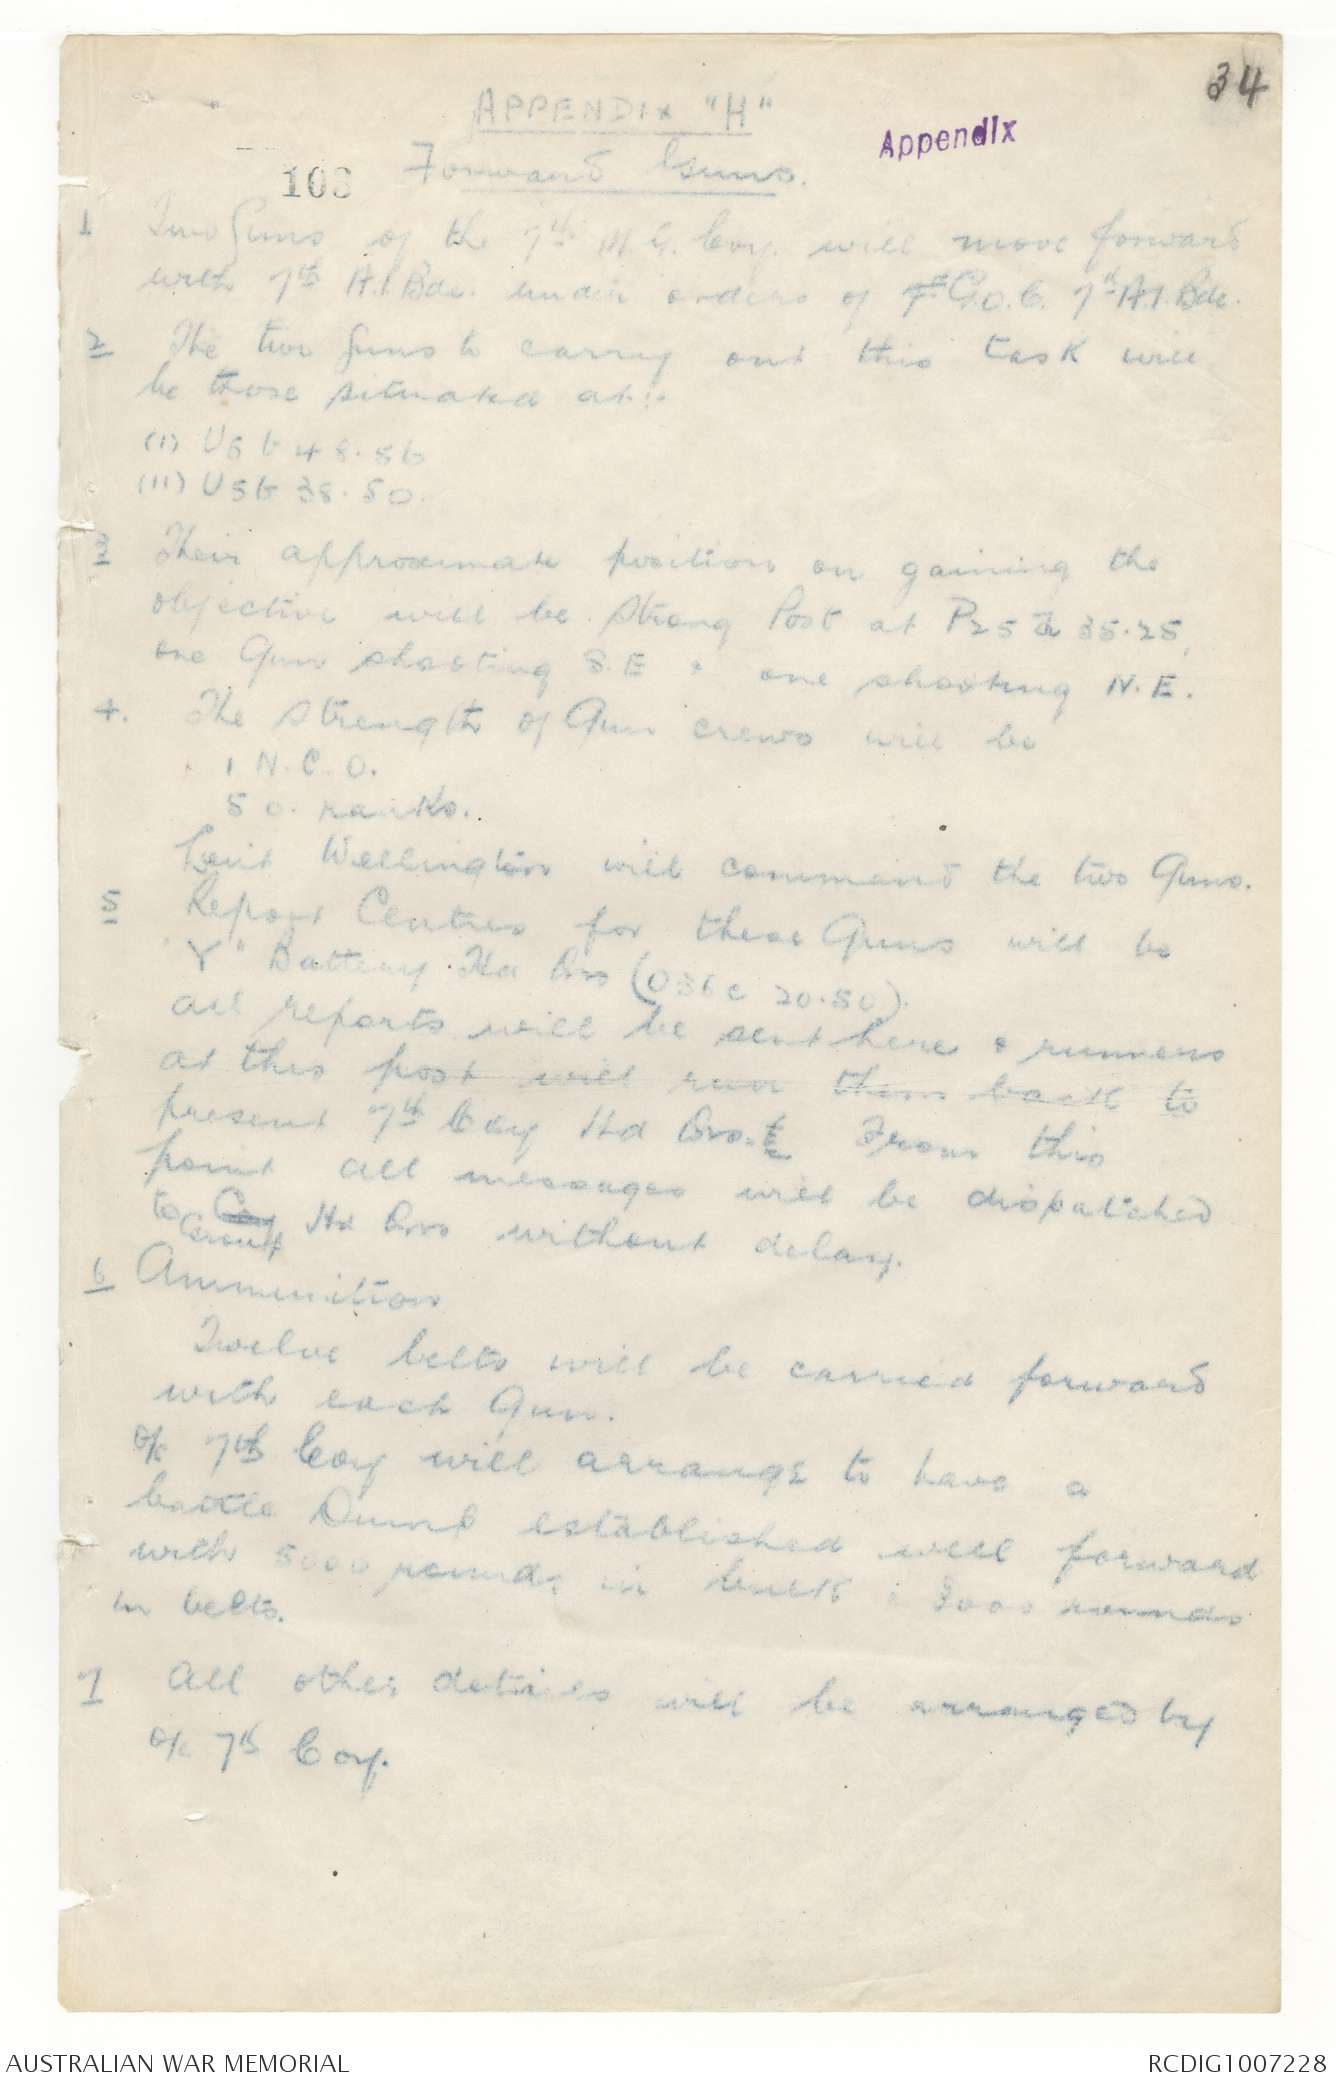 34
APPENDIX "H"
Appendix
103 Forward Guns.
1 Two Guns of the 7th M.G. Coy. will move forward
with 7th A.I.Bde. under orders of G.O.C. 7th A.I.Bde.
2 The two Guns to carry out this task will
be those situated at:-
(I) U5b 48.56
(II) U5b 38.50.
3 Their approximate position on gaining the
objective will be Strong Post at P25 35.25,
one Gun shooting S.E & one shooting N.E.
4. The strength of Gun crews will be
1 N.C.O.
5 O. ranks.
Leuit Wellington will command the two Guns.
5 Report Centres for these Guns will be
"Y" Battery Hd Qrs (O36c 20.50).
all reports will be sent here & runners
at this post will run them back to
present 7th Coy Hd Qrs. From this
point all messages will be dispatched
to Coy Hd Qrs without delay.
Group
6 Ammunition
Twelve belts will be carried forward
with each Gun.
O/c 7th Coy will arrange to have a
battle Dump established well forward
with 5000 rounds in bulk & 3000 rounds
in belts.
7 All other details will be arranged by
O/c 7th Coy.
AUSTRALIAN WAR MEMORIAL
RCDIG1007228